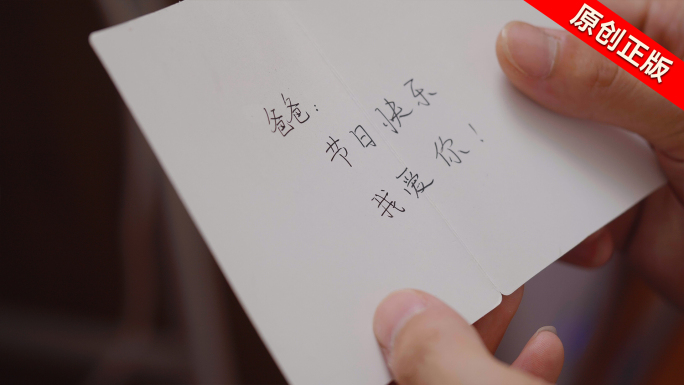 爸爸：
节日快乐
我爱你！
原创正版